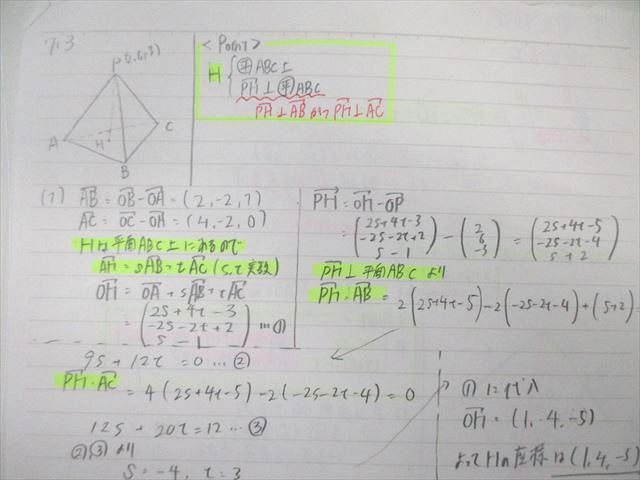 7.3
P(2,6,-3)
A
B
C
H
<Point>
H { ㊥ABC上
PH⊥㊥ABC
PH⊥AB かつ PH⊥AC
(1) AB = OB - OA = (2, -2, 1)
AC = OC - OA = (4, -2, 0)
Hは平面ABC上にあるので
AH = sAB + tAC (s,t実数)
OH = OA + sAB + tAC
= (2s+4t-3
-2s-2t+2
s-1) …①
PH = OH - OP
= (2s+4t-3
-2s-2t+2
s-1) - (2
6
-3) = (2s+4t-5
-2s-2t-4
s+2)
PH⊥平面ABCより
PH・AB = 2(2s+4t-5)-2(-2s-2t-4)+(s+2)
9s+12t=0…②
PH・AC = 4(2s+4t-5)-2(-2s-2t-4)=0
12s+20t=12…③
②③より
s=-4, t=3
①に代入
OH = (1, 4, -5)
よってHの座標は(1, 4, -5)